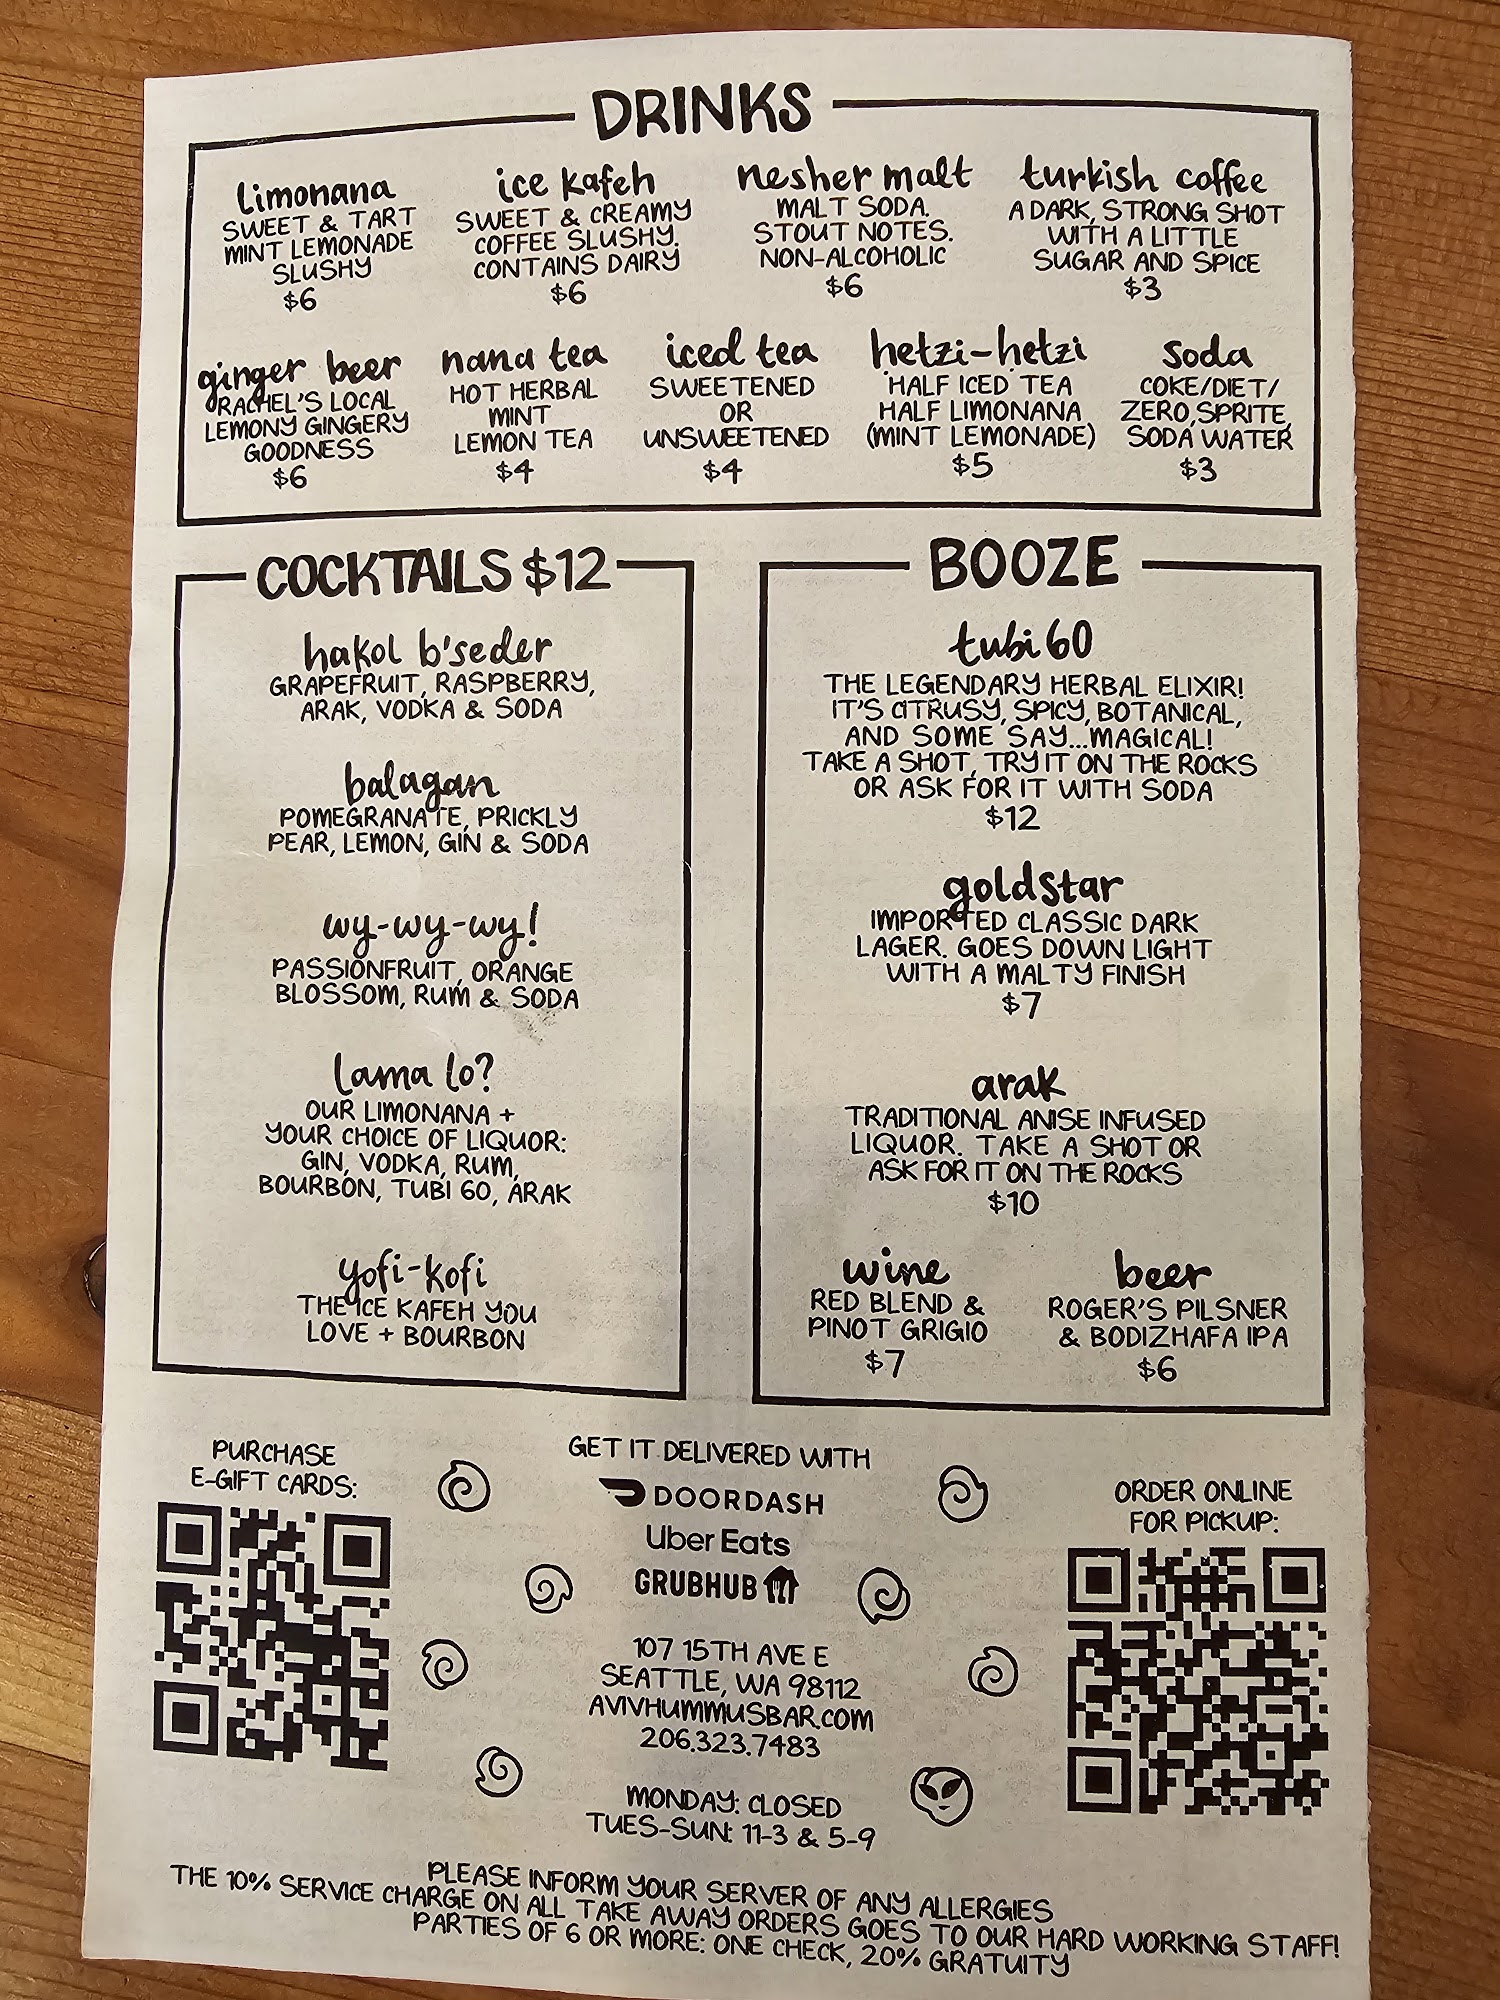 DRINKS
limonana
SWEET & TART
MINT LEMONADE
SLUSHY
$6
ice kafeh
SWEET & CREAMY
COFFEE SLUSHY.
CONTAINS DAIRY
$6
nesher malt
MALT SODA.
STOUT NOTES.
NON-ALCOHOLIC
$6
turkish coffee
A DARK, STRONG SHOT
WITH A LITTLE
SUGAR AND SPICE
$3
ginger beer
RACHEL'S LOCAL
LEMONY GINGERY
GOODNESS
$6
nana tea
HOT HERBAL
MINT
LEMON TEA
$4
iced tea
SWEETENED
OR
UNSWEETENED
$4
hetzi-hetzi
HALF ICED TEA
HALF LIMONANA
(MINT LEMONADE)
$5
soda
COKE/DIET/
ZERO, SPRITE,
SODA WATER
$3
COCKTAILS $12
hakol b'seder
GRAPEFRUIT, RASPBERRY,
ARAK, VODKA & SODA
balagan
POMEGRANATE, PRICKLY
PEAR, LEMON, GIN & SODA
wy-wy-wy!
PASSIONFRUIT, ORANGE
BLOSSOM, RUM & SODA
lama lo?
OUR LIMONANA +
YOUR CHOICE OF LIQUOR:
GIN, VODKA, RUM,
BOURBON, TUBI 60, ARAK
yofi-kofi
THE ICE KAFEH YOU
LOVE + BOURBON
BOOZE
tubi 60
THE LEGENDARY HERBAL ELIXIR!
IT'S CITRUSY, SPICY, BOTANICAL,
AND SOME SAY...MAGICAL!
TAKE A SHOT, TRY IT ON THE ROCKS
OR ASK FOR IT WITH SODA
$12
goldstar
IMPORTED CLASSIC DARK
LAGER. GOES DOWN LIGHT
WITH A MALTY FINISH
$7
arak
TRADITIONAL ANISE INFUSED
LIQUOR. TAKE A SHOT OR
ASK FOR IT ON THE ROCKS
$10
wine
RED BLEND &
PINOT GRIGIO
$7
beer
ROGER'S PILSNER
& BODIZHAFA IPA
$6
PURCHASE
E-GIFT CARDS:
GET IT DELIVERED WITH
DOORDASH
Uber Eats
GRUBHUB
107 15TH AVE E
SEATTLE, WA 98112
AVIVHUMMUSBAR.COM
206.323.7483
MONDAY: CLOSED
TUES-SUN: 11-3 & 5-9
ORDER ONLINE
FOR PICKUP:
PLEASE INFORM YOUR SERVER OF ANY ALLERGIES
THE 10% SERVICE CHARGE ON ALL TAKE AWAY ORDERS GOES TO OUR HARD WORKING STAFF!
PARTIES OF 6 OR MORE: ONE CHECK, 20% GRATUITY